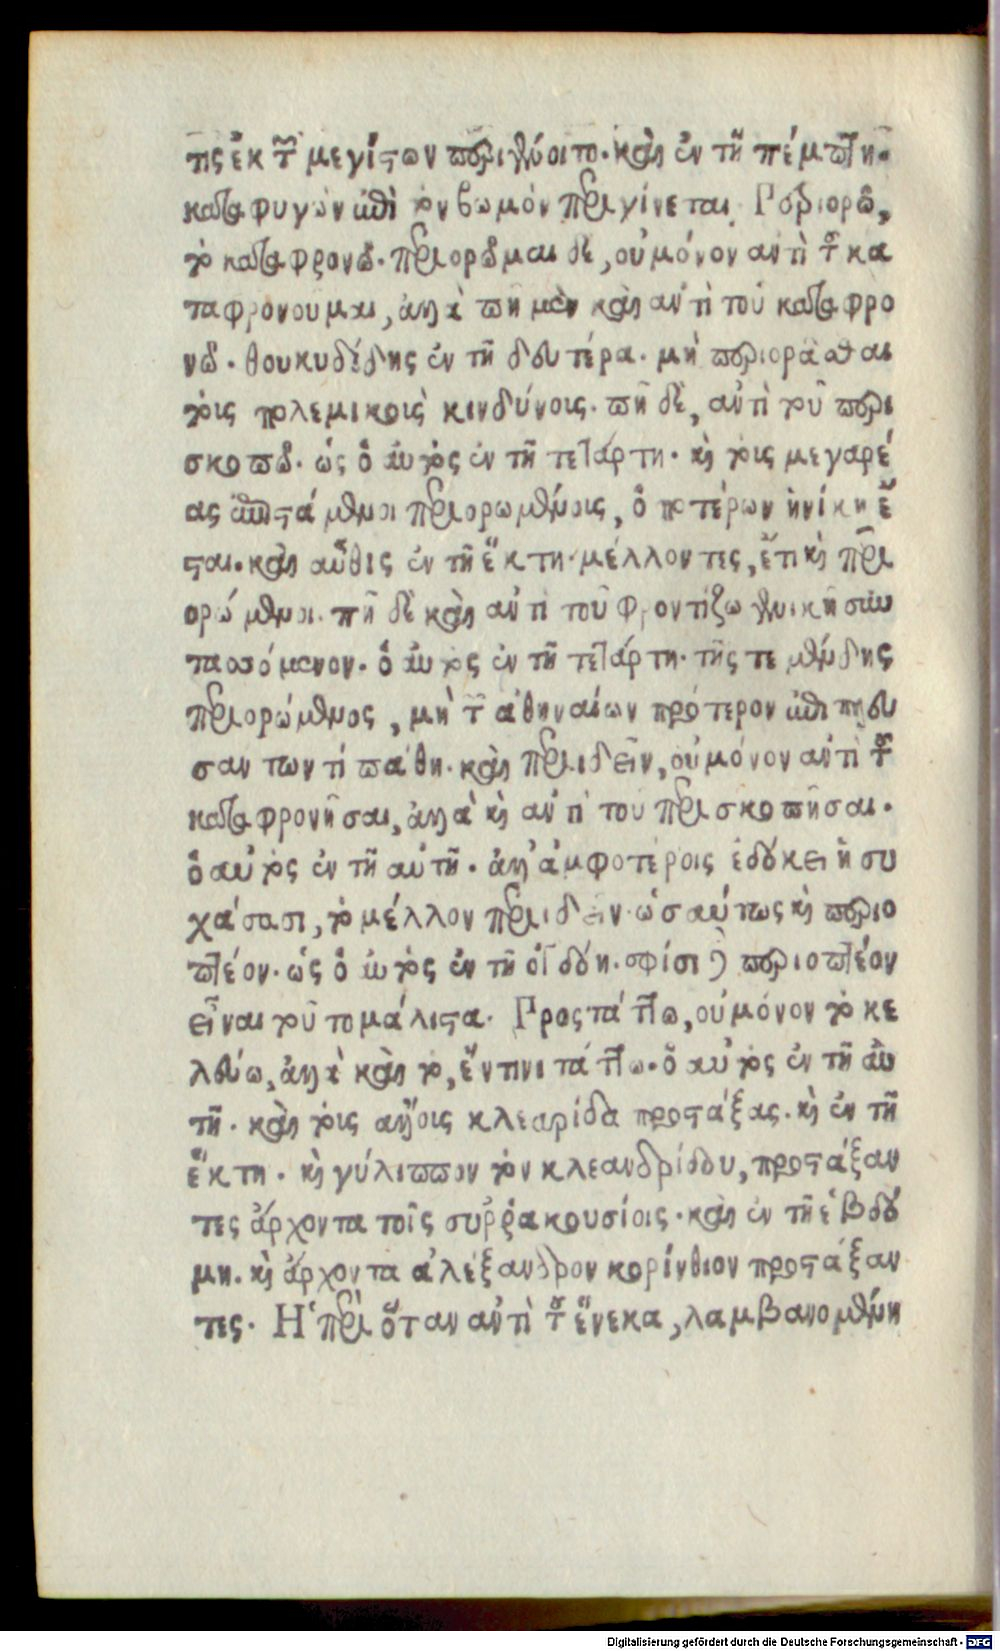 τις ἐκ τῶν μεγίστων περιγένοιτο. καὶ ἐν τῇ πέμπτῃ.
καταφυγὼν ἐπὶ τὸν βωμὸν περιγίνεται. Περιορῶ,
τὸ καταφρονῶ. περιορῶμαι δὲ, οὐ μόνον αντὶ τοῦ κα
ταφρονουμαι, ἀλλὰ πῆ μὲν καὶ αντὶ τοῦ καταφρο
νῶ. θουκυδίδης ἐν τῇ δευτέρα. μὴ περιορᾶσθαι
τοις πολεμικοις κινδύνοις. πῆ δὲ, αὐτὶ τοῦ περι
σκοπῶ. ὡς ὁ αυτὸς ἐν τῇ τετάρτῃ. καὶ τοις μεγαρέ
ας περιορωμένοις, ὁποτέρων ἡ νίκη ἔ
σται. καὶ αὖθις ἐν τῇ ἕκτῃ. μέλλοντες, ἔτι καὶ περι
ορώμενοι. πῆ δὲ καὶ αντὶ τοῦ φροντίζω γενικῇ συν
τασσόμενον. ὁ αυτὸς ἐν τῇ τετάρτῃ. τῆς τε μένδης
περιορώμενος, μὴ τῶν ἀθηναίων πρότερον ἐπιπλευ
σαντων τὶ πάθῃ. καὶ περιιδεῖν, οὐ μόνον αὐτὶ τοῦ
καταφρονῆσαι, ἀλλὰ καὶ αντὶ τοῦ περισκοπῆσαι.
ὁ αὐτὸς ἐν τῇ αὐτῇ. ἀλλ' ἀμφοτέροις ἐδόκει ἡσυ
χάσασι, τὸ μέλλον περιιδεῖν. ὡσαύτως καὶ περιο
πτέον. ὡς ὁ αυτὸς ἐν τῇ ὀγδόῃ. σφίσι περιοπτέον
εἶναι τοῦτο μάλιστα. Προστάττω, οὐ μόνον τὸ κε
λεύω, ἀλλὰ καὶ τὸ, ἔν τινι τάττω. ὁ αὐτὸς ἐν τῇ αὐ
τῇ. καὶ τοις ἄλλοις κλεαρίδα προστάξας. καὶ ἐν τῇ
ἕκτῃ. καὶ γύλιππον τὸν κλεανδρίδου, προστάξαν
τες ἄρχοντα τοῖς συῤῥακουσίοις. καὶ ἐν τῇ ἑβδό
μῃ. καὶ ἄρχοντα ἀλέξανδρον κορίνθιον προστάξαν
τες. Ἡ περὶ ὅταν αὐτὶ τοῦ ἕνεκα, λαμβανομένη
Digitalisierung gefördert durch die Deutsche Forschungsgemeinschaft - DFG